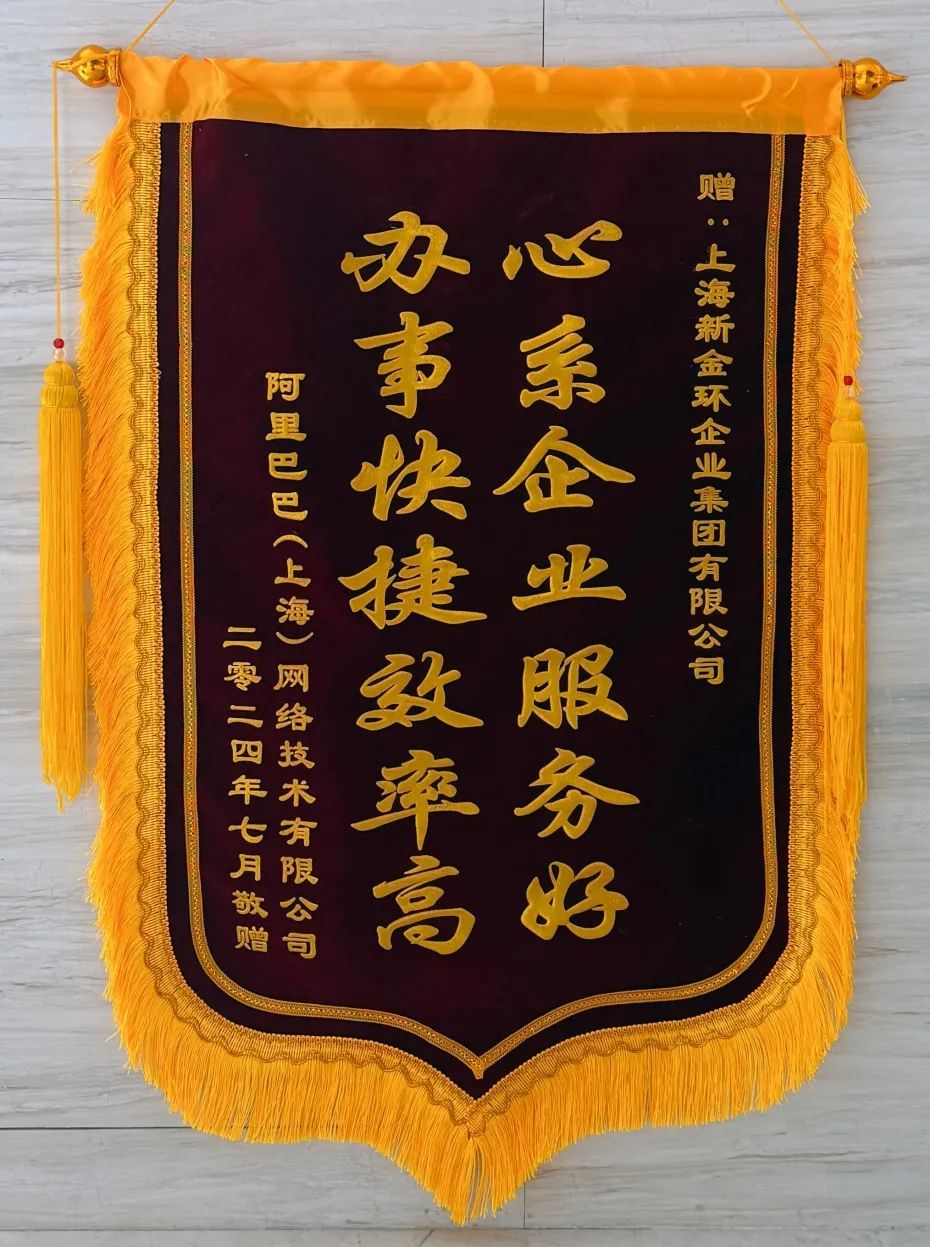 赠：上海新金环企业集团有限公司
心系企业服务好
办事快捷效率高
阿里巴巴（上海）网络技术有限公司
二零二四年七月敬赠